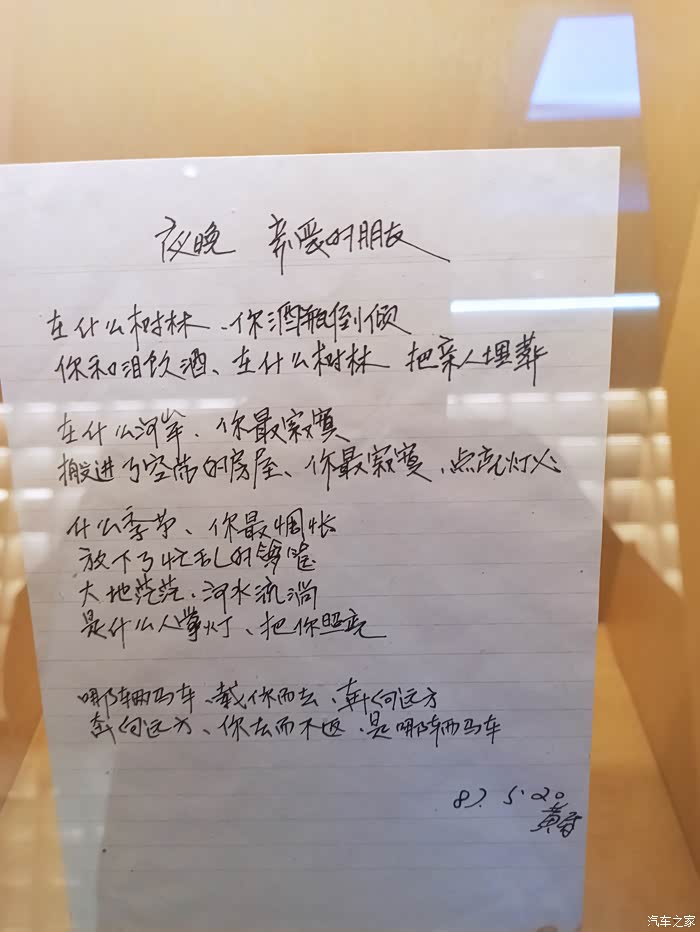 夜晚 亲爱的朋友
在什么树林、你酒瓶倒倾
你和泪饮酒、在什么树林 把亲人埋葬
在什么河岸、你最寂寞
搬进了空荡的房屋、你最寂寞、点亮灯火
什么季节、你最惆怅
放下了忙乱的箩筐
大地茫茫、河水流淌
是什么人掌灯、把你照亮
哪辆马车、载你而去、奔向远方
奔向远方、你去而不返、是哪辆马车
87.5.20
汽车之家